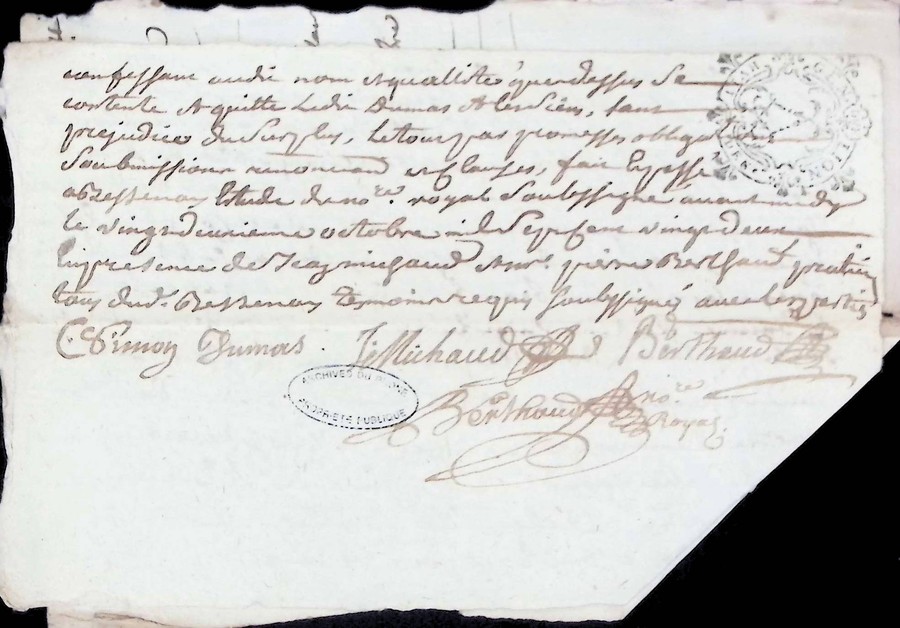 confessant audit nom et quallité que dessus sa
contente et quitte ledit Dumas et les siens, sans
prejudice du surplus, le tout par promesses obliga
soubmissions renon et clauses, fait et passé
a Bessenay letude du nore. royal soubssigné avant midy
le vingt deuxieme octobre mil sept cent vingt deux
en presence de Jean michaud et Mre. pierre Berthaud praticien
tous dud. Bessenay temoins requis soubssigné avec les parties
C. Simon Dumas. J. Michaud Berthaud
ARCHIVES DU RHONE
PROPRIETE PUBLIQUE
Berthaud nore
Royal.